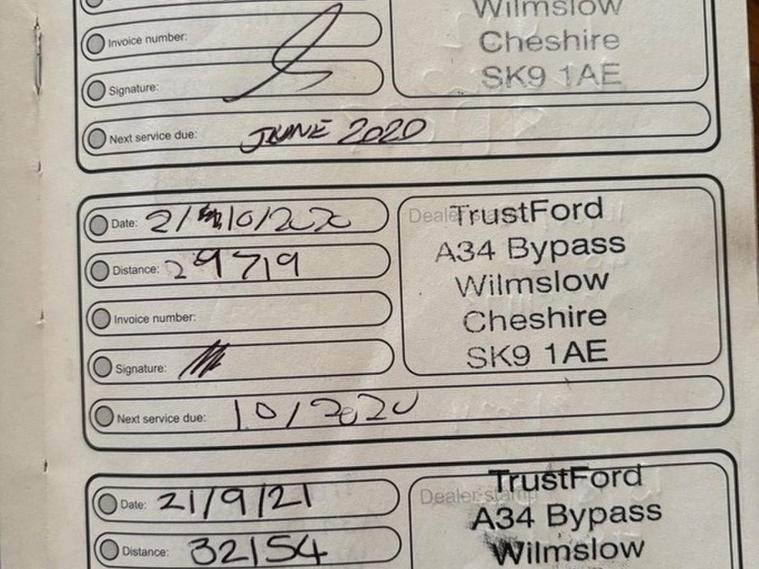 Wilmslow
Invoice number:
Cheshire
Signature:
SK9 1AE
Next service due: JUNE 2020
Date: 2/10/2020
Dealer stamp
TrustFord
Distance: 29719
A34 Bypass
Wilmslow
Invoice number:
Cheshire
Signature:
SK9 1AE
Next service due: 10/2020
Date: 21/9/21
Dealer stamp
TrustFord
A34 Bypass
Distance: 32154
Wilmslow